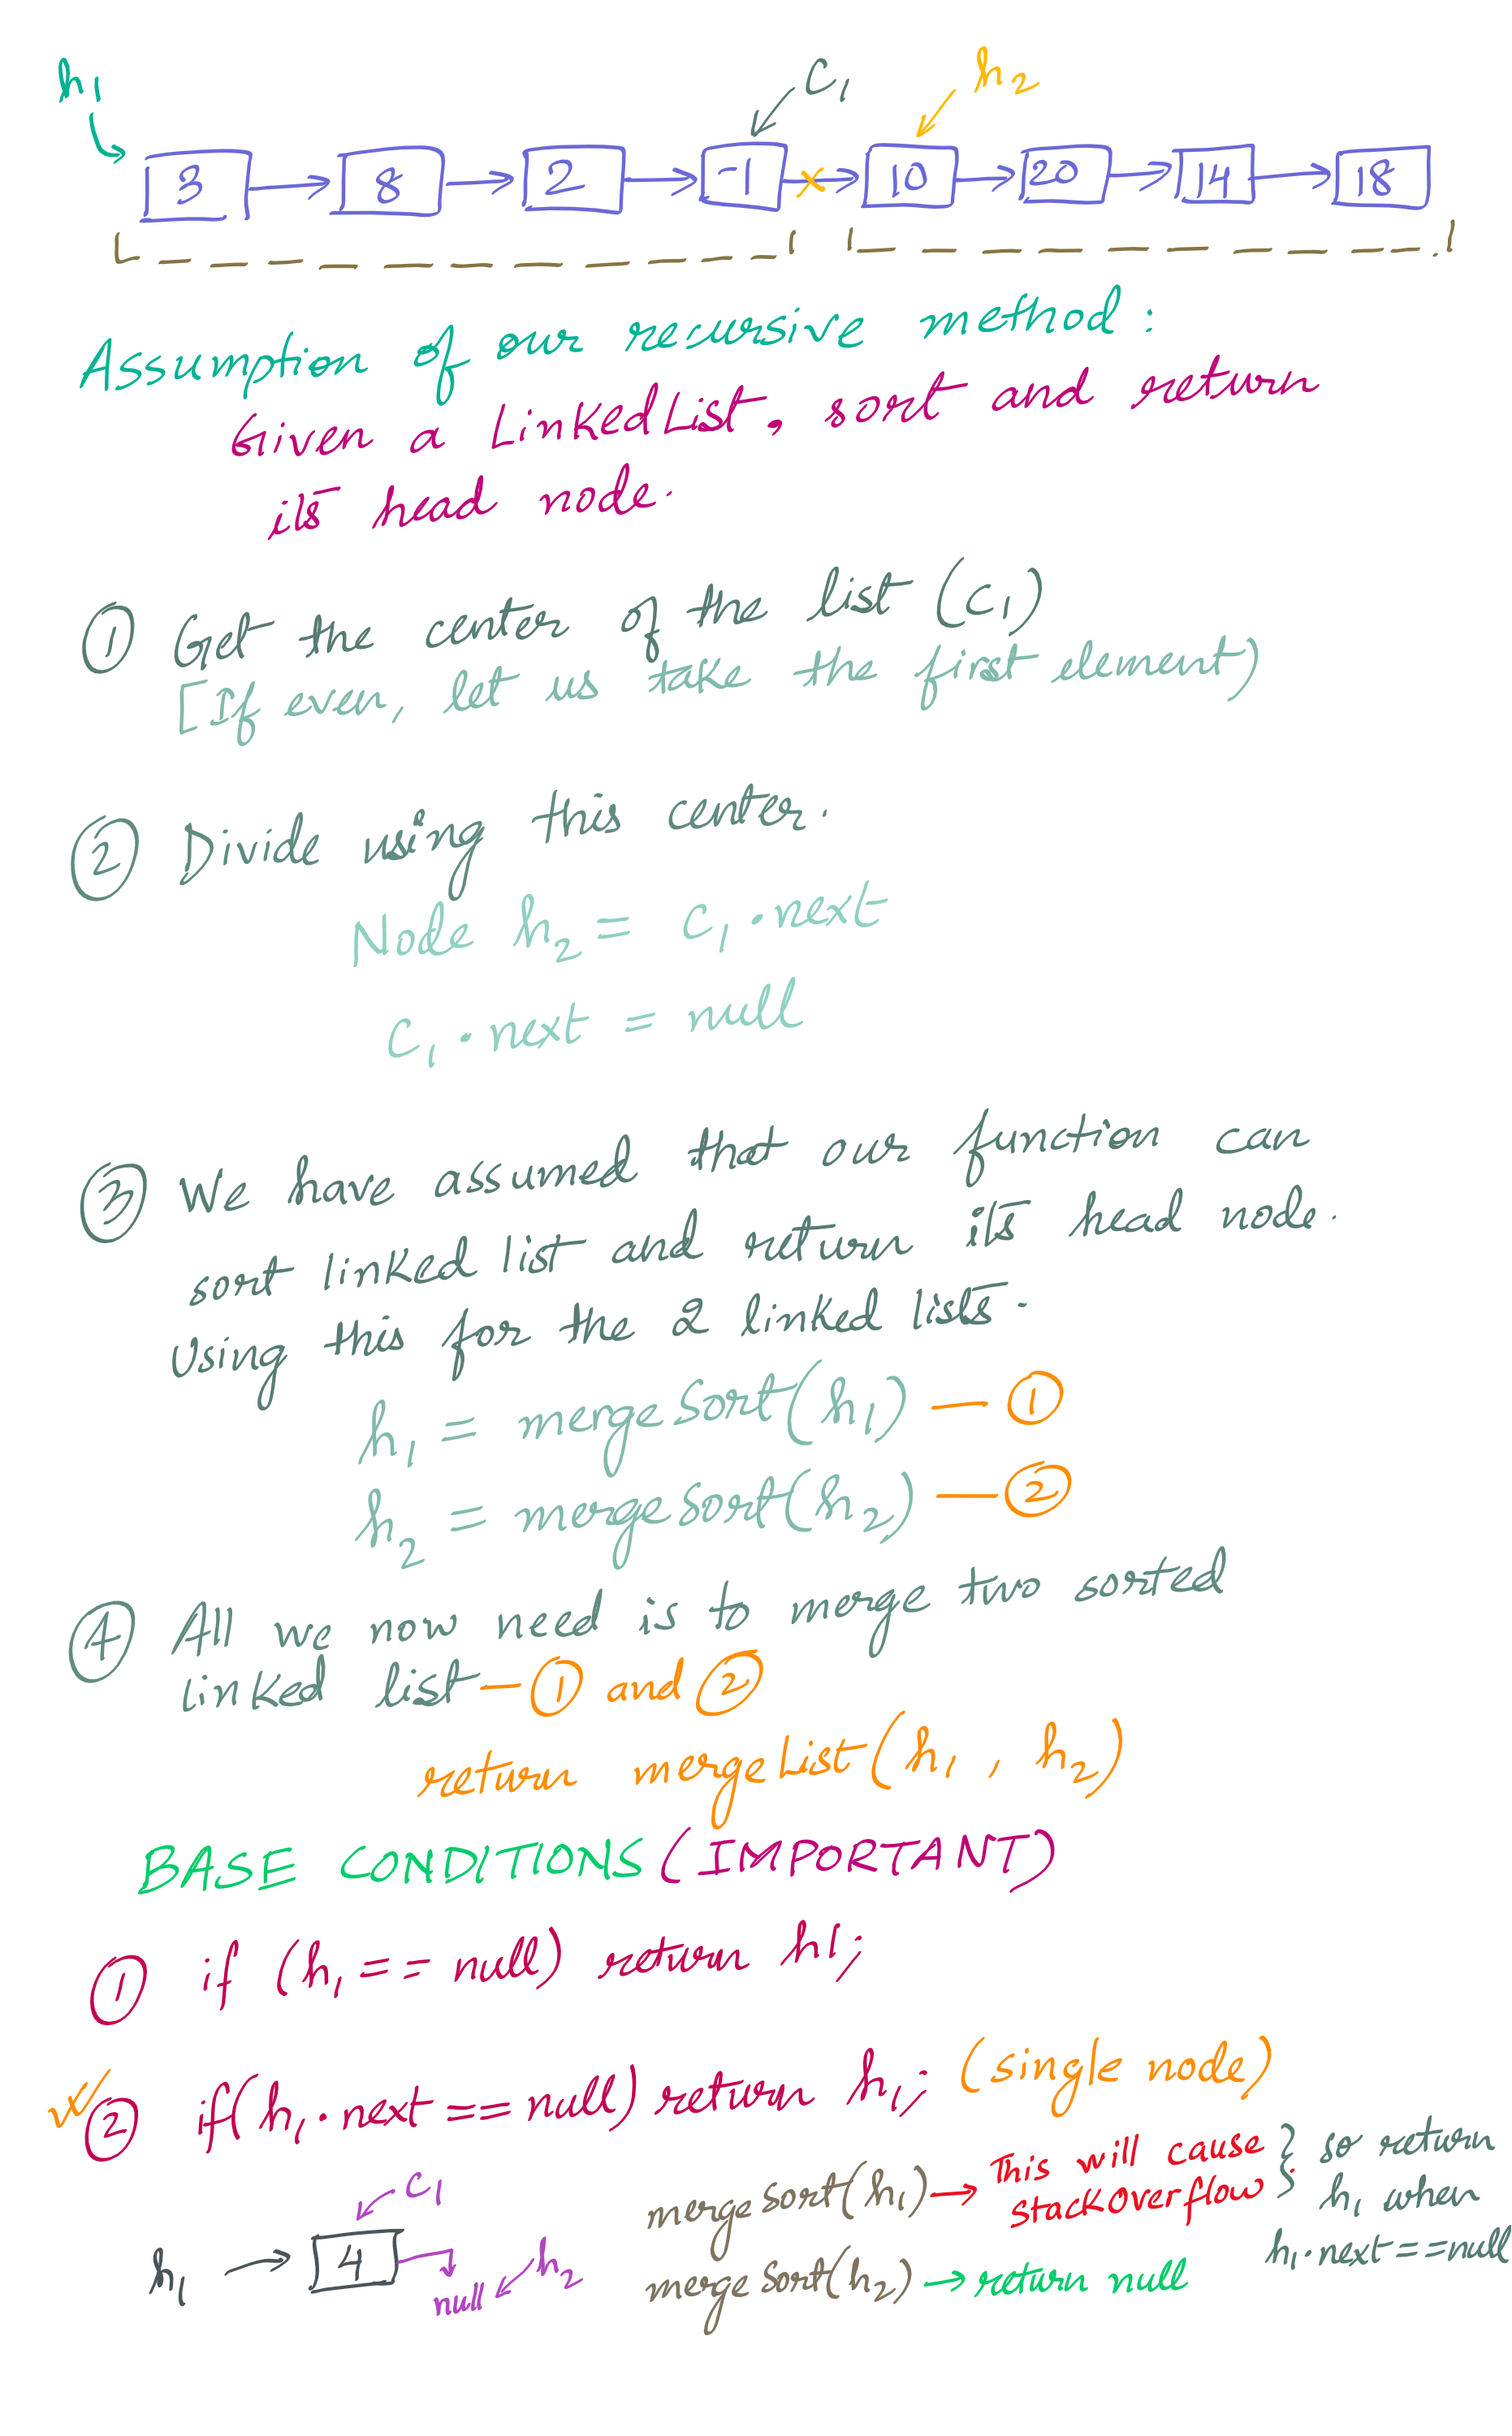 h₁ C₁ h₂
3 8 2 -1 10 20 14 18
Assumption of our recursive method:
Given a LinkedList, sort and return
its head node.
① Get the center of the list (C₁)
[If even, let us take the first element)
② Divide using this center.
Node h₂ = C₁.next
C₁.next = null
③ We have assumed that our function can
sort linked list and return its head node.
Using this for the 2 linked lists.
h₁ = mergeSort(h₁) — ①
h₂ = mergeSort(h₂) — ②
④ All we now need is to merge two sorted
linked list — ① and ②
return mergeList(h₁, h₂)
BASE CONDITIONS (IMPORTANT)
① if (h₁ == null) return h1;
② if(h₁.next == null) return h₁; (single node)
mergeSort(h₁) → This will cause } so return
stackOverflow h₁ when
h₁.next==null
C₁
h₁ → 4 null h₂
mergeSort(h₂) → return null